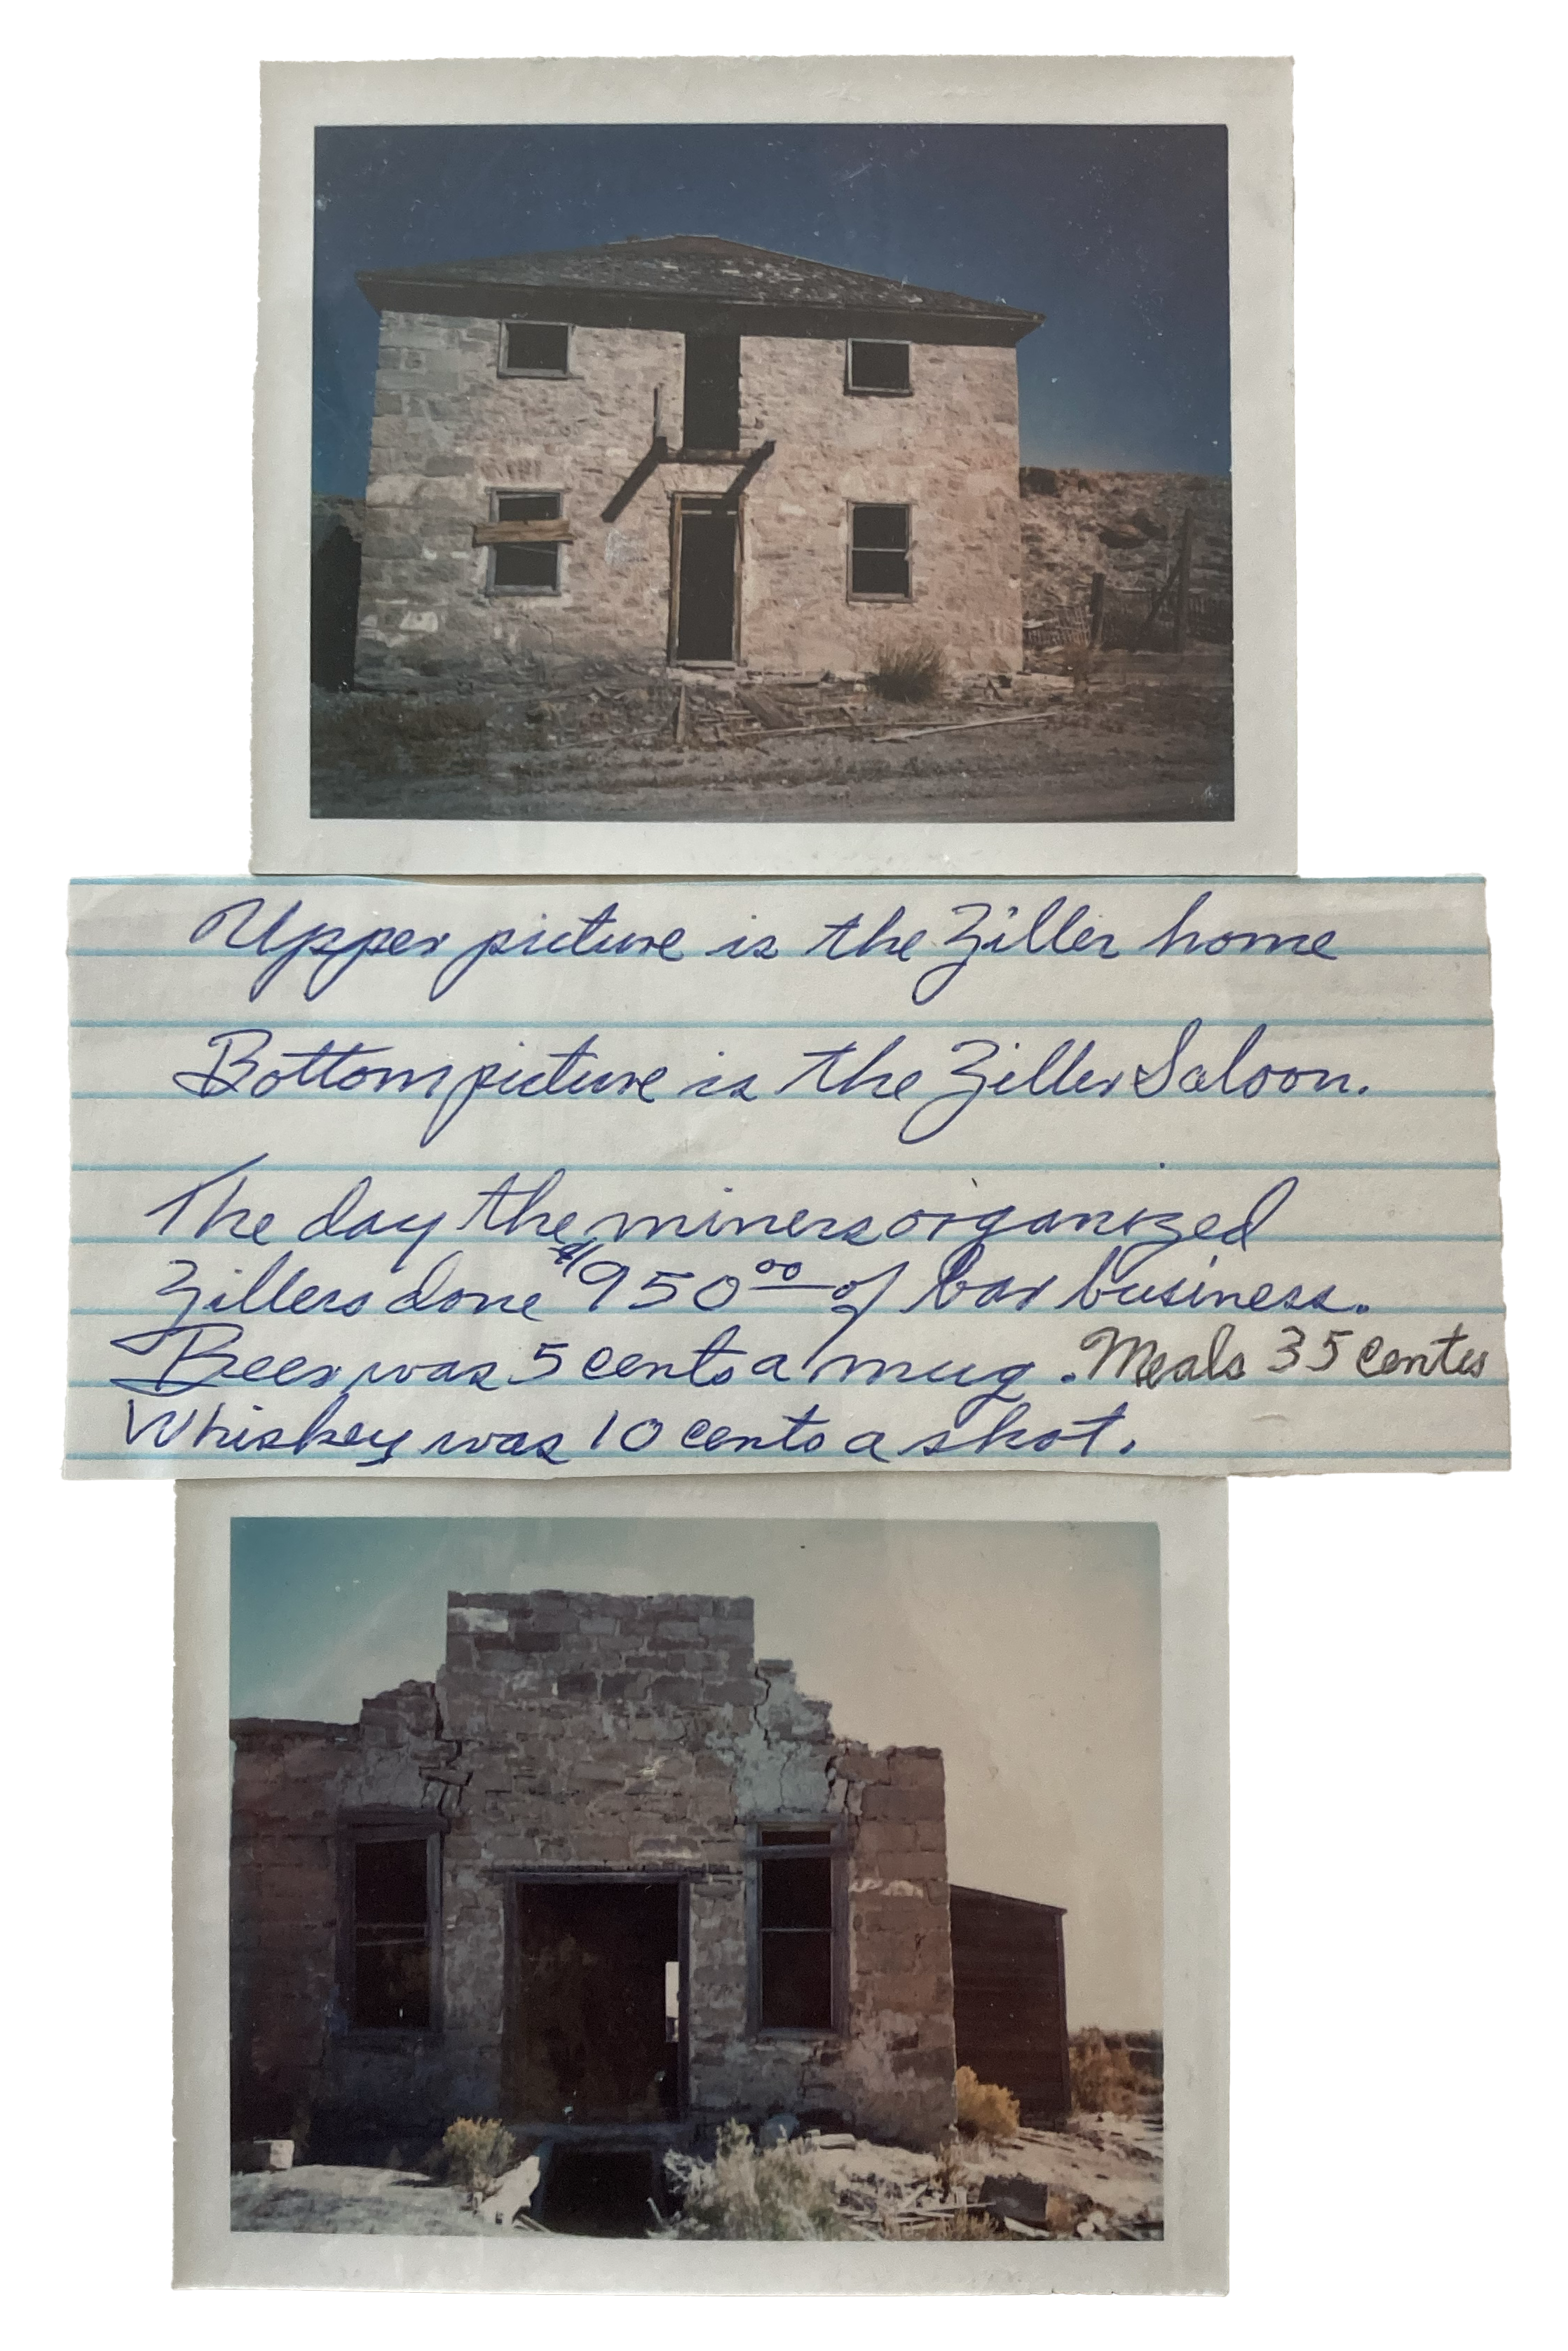 Upper picture is the Ziller home
Bottom picture is the Ziller Saloon.
The day the miners organized
Zillers done $950.00 of bar business.
Beer was 5 cents a mug. Meals 35 centes
Whiskey was 10 cents a shot.